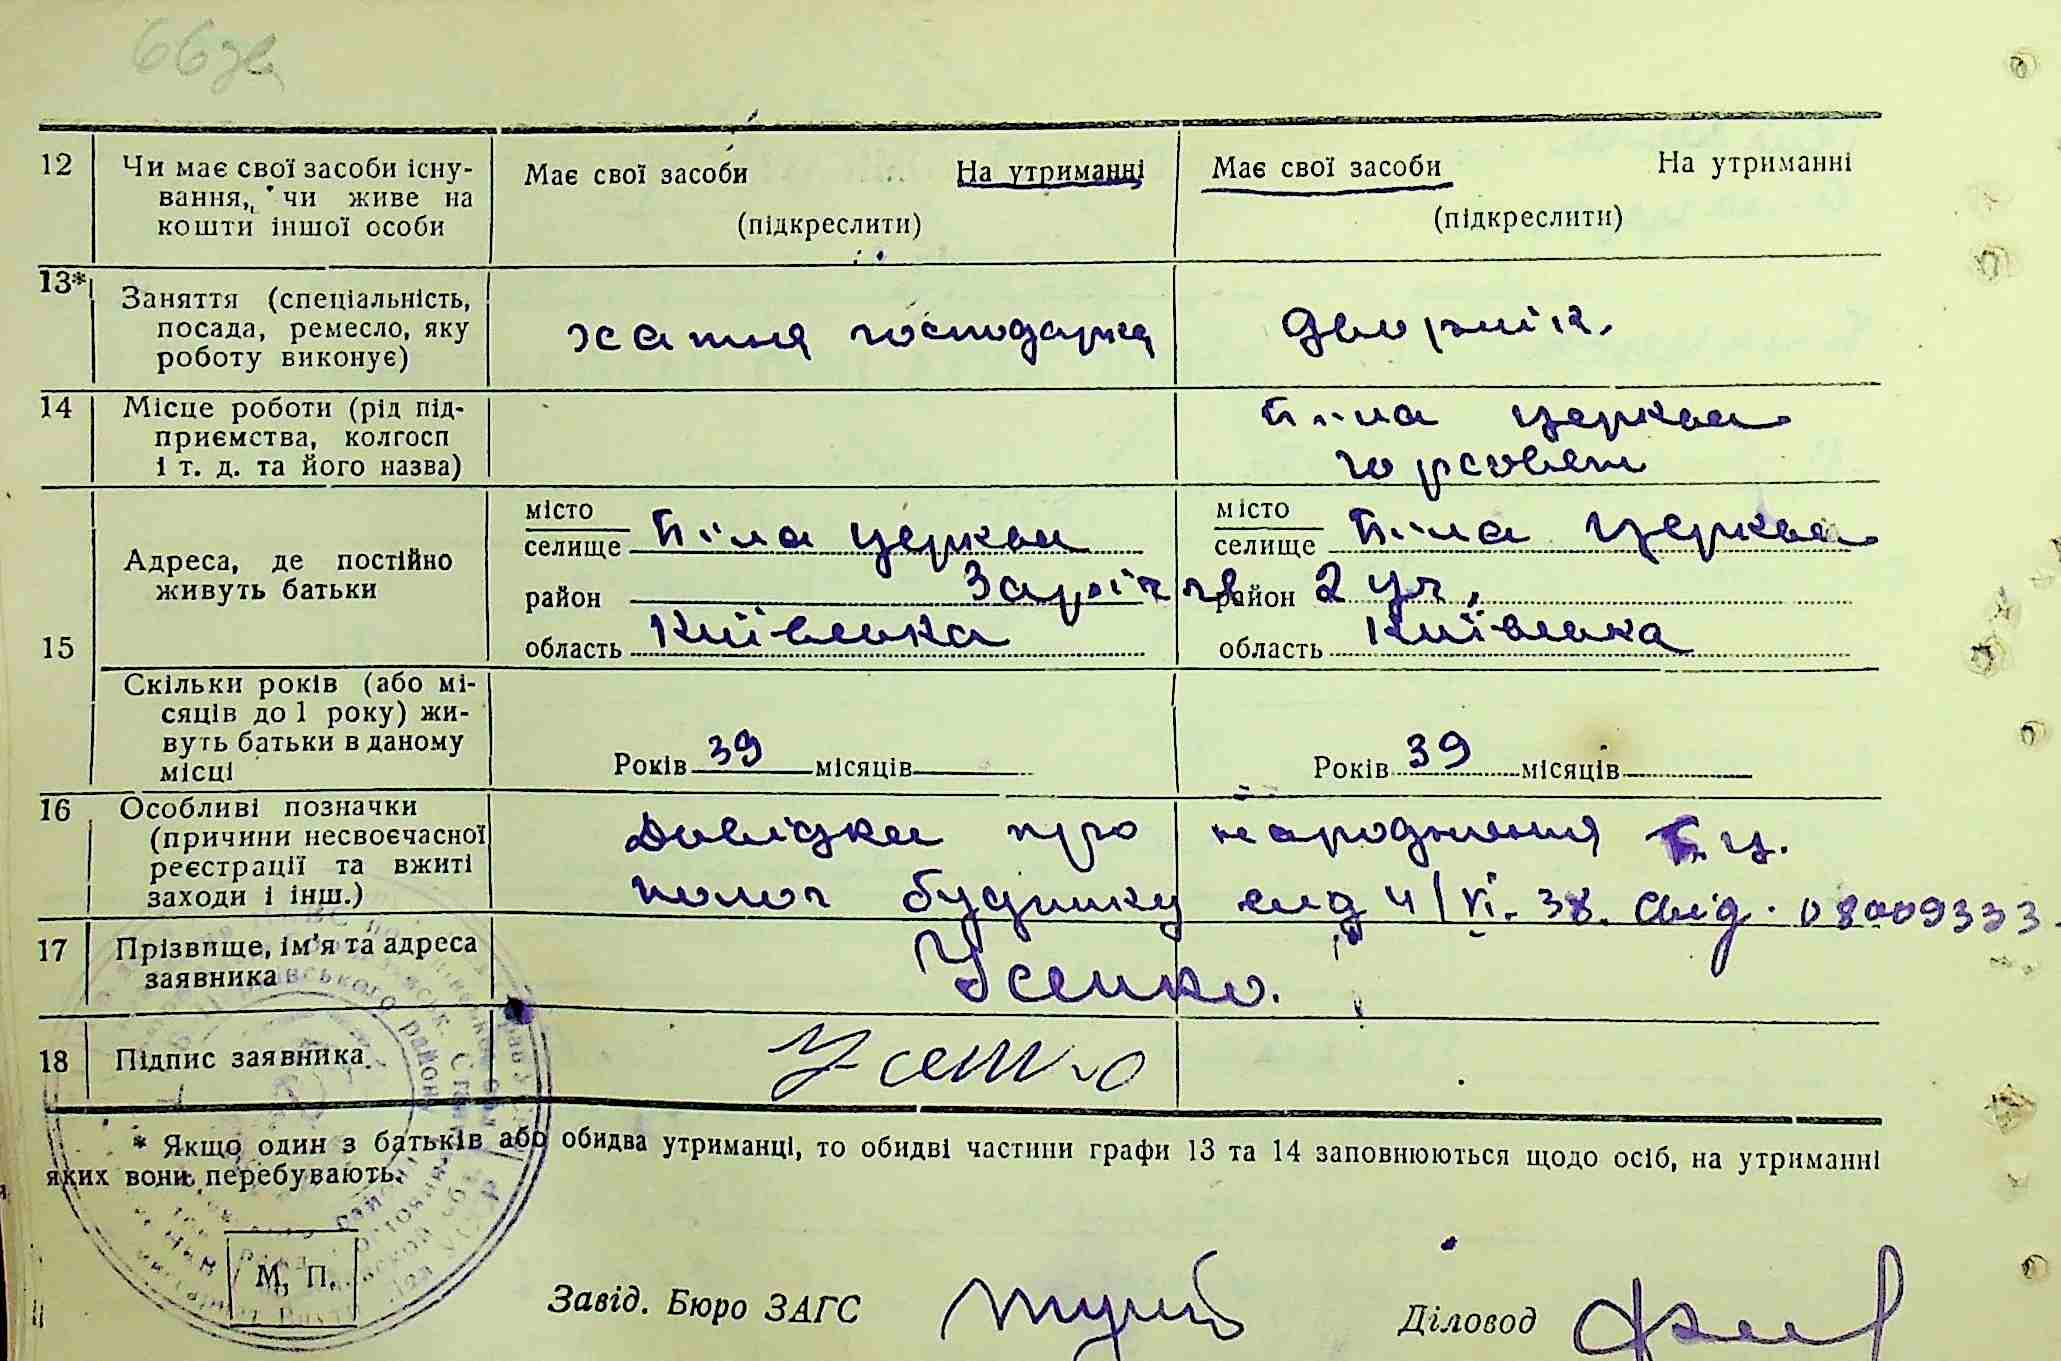 66зв
12 Чи має свої засоби існу- Має свої засоби На утриманні Має свої засоби На утриманні
вання, чи живе на (підкреслити) (підкреслити)
кошти іншої особи
13* Заняття (спеціальність, посада, ремесло, яку роботу виконує) хатня господарка дворнік.
14 Місце роботи (рід під-
приємства, колгосп
і т. д. та його назва)
Біла церква
горсовет
15 Адреса, де постійно
живуть батьки
місто
селище Біла церква
район Заріч
область Київська
місто
селище Біла церква
район 2 уч,
область Київська
Скільки років (або мі-
сяців до 1 року) жи-
вуть батьки в даному
місці
Років 39 місяців
Років 39 місяців
16 Особливі позначки
(причини несвоєчасної
реєстрації та вжиті
заходи і інш.)
Довідка про народження Б.ц.
полог будинку від 4/VI. 38. свід.
17 Прізвище, ім'я та адреса
заявника
Усенко.
18 Підпис заявника Усенко
* Якщо один з батьків або обидва утриманці, то обидві частини графи 13 та 14 заповнюються щодо осіб, на утриманні
яких вони перебувають.
М. П.
Завід. Бюро ЗАГС Діловод